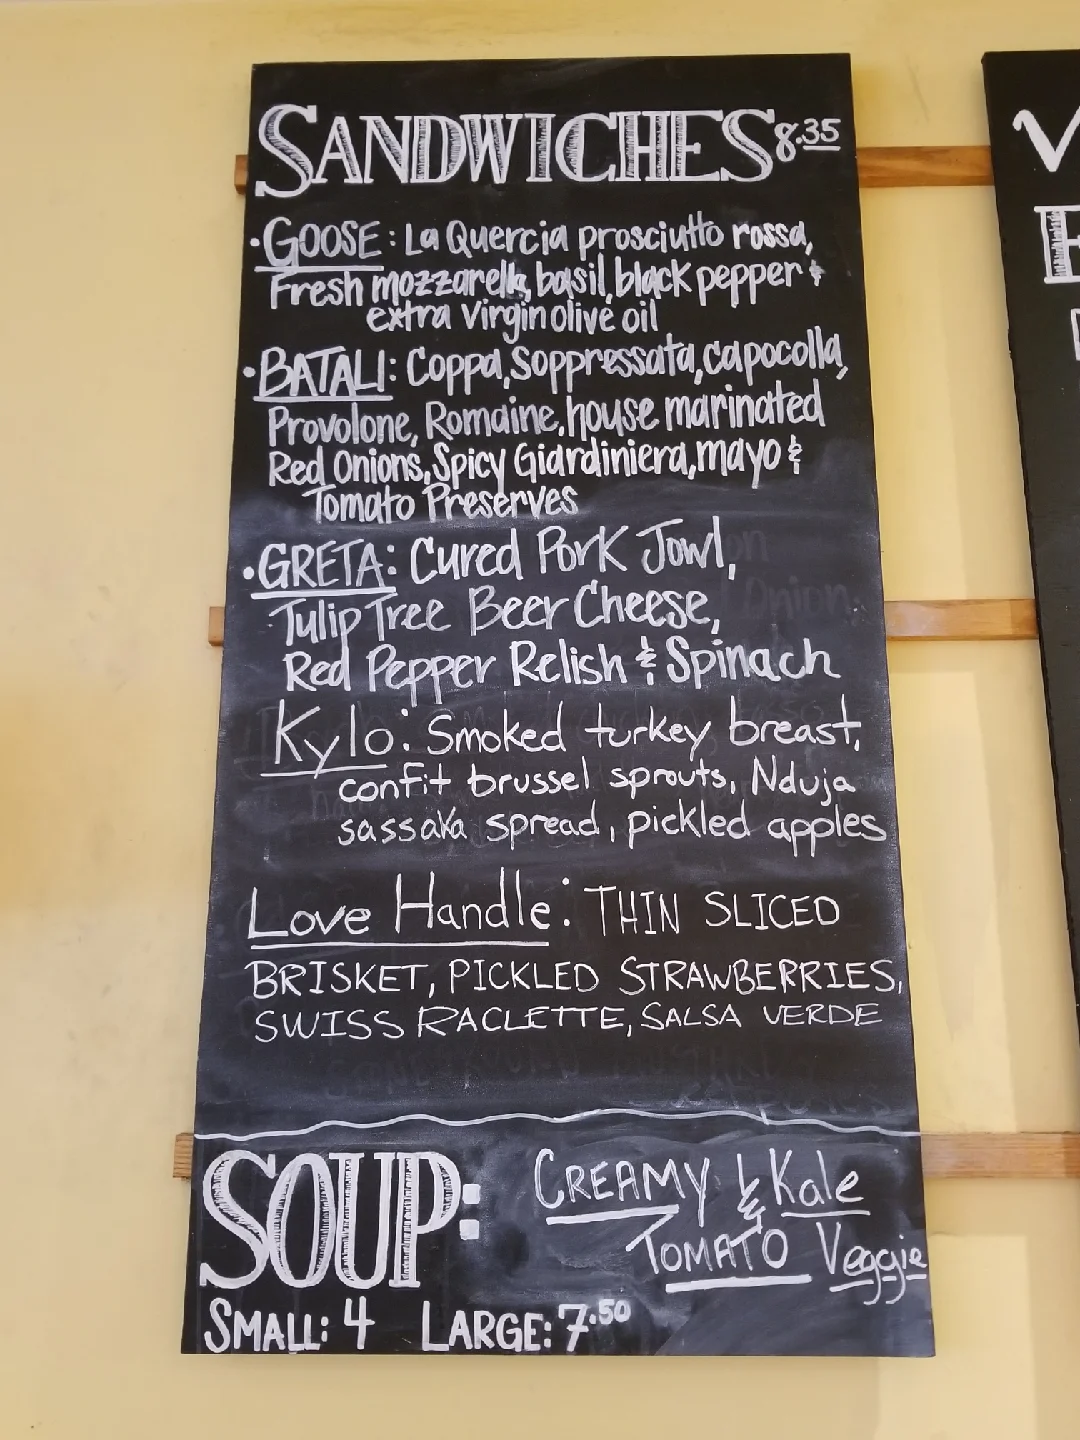 SANDWICHES 8.35
• GOOSE: La Quercia prosciutto rossa,
Fresh mozzarella, basil, black pepper &
extra virgin olive oil
• BATALI: Coppa, Soppressata, capocolla,
Provolone, Romaine, house marinated
Red Onions, Spicy Giardiniera, mayo &
Tomato Preserves
• GRETA: Cured Pork Jowl,
Tulip Tree Beer Cheese,
Red Pepper Relish & Spinach
Kylo: Smoked turkey breast,
confit brussel sprouts, Nduja
sassaka spread, pickled apples
Love Handle: THIN SLICED
BRISKET, PICKLED STRAWBERRIES,
SWISS RACLETTE, SALSA VERDE
SOUP: CREAMY & Kale
TOMATO Veggie
SMALL: 4 LARGE: 7.50